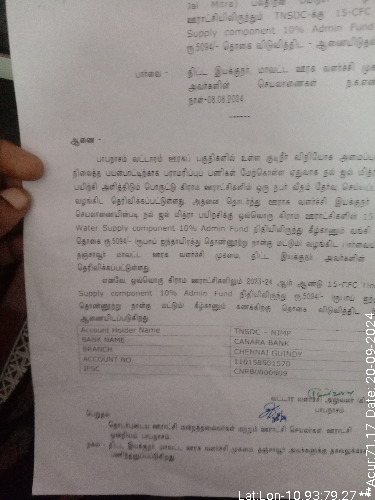 Jal Mitra)
ஊராட்சியிலிருந்தும் TNSDC-க்கு 15-CFC
Supply component 10% Admin Fund
ரூ.5094/- தொகை விடுவித்திட - ஆணையிடுதல்
பார்வை - திட்ட இயக்குநர், மாவட்ட ஊரக வளர்ச்சி முக
அவர்களின் செயலாணைகள் ந.க.எண்
நாள்-08.08.2024
------
ஆணை -
பாபநாசம் வட்டாரம் ஊரகப் பகுதிகளில் உள்ள குடிநீர் விநியோக அமைப்பு
நிலைத்த பயன்பாட்டிற்காக பராமரிப்புப் பணிகள் மேற்கொள்ள ஏதுவாக நல் ஜல் மித்ரா
பயிற்சி அளித்திடும் பொருட்டு கிராம ஊராட்சிகளில் ஒரு நபர் வீதம் தேர்வு
வழங்கிட தெரிவிக்கப்பட்டுள்ளது. அதனை தொடர்ந்து ஊரக வளர்ச்சி இயக்குநர்
செயலாணையின்படி நல் ஜல் மித்ரா பயிற்சிக்கு ஒவ்வொரு கிராம ஊராட்சிகளின் 15
Water Supply component 10% Admin Fund நிதியிலிருந்து கீழ்காணும் வங்கி
தொகை ரூ.5094/- (ரூபாய் ஐந்தாயிரத்து தொண்ணூற்று நான்கு மட்டும்) வழங்கிட
தஞ்சாவூர் மாவட்ட ஊரக வளர்ச்சி முகமை திட்ட இயக்குநர் அவர்களின்
தெரிவிக்கப்பட்டுள்ளது.
எனவே, ஒவ்வொரு கிராம ஊராட்சிகளிலும் 2023-24 ஆம் ஆண்டு 15-CFC
Supply component 10% Admin Fund நிதியிலிருந்து ரூ.5094/-
தொண்ணூற்று நான்கு மட்டும்) கீழ்காணும் கணக்கிற்கு தொகை விடுவித்திட
ஆணையிடப்படுகிறது.
Account Holder Name TNSDC - NJMP
BANK NAME CANARA BANK
BRANCH CHENNAI GUINDY
ACCOUNT NO. 110158501570
IFSC CNRB0000909
வட்டார வளர்ச்சி அலுவலர்
பாபநாசம்
பெறுநர்
தொடர்புடைய ஊராட்சி மன்றத்தலைவர்கள் மற்றும் ஊராட்சி செயலர்கள் ஊராட்சி
ஒன்றியம் பாபநாசம்
நகல் - திட்ட இயக்குநர், மாவட்ட ஊரக வளர்ச்சி முகமை தஞ்சாவூர் அவர்களுக்கு தகவலுக்காக
பணிந்தனுப்பப்படுகிறது.
**Acur:71.17 Date: 20-09-2024
Lat:Lon-10.93:79.27**